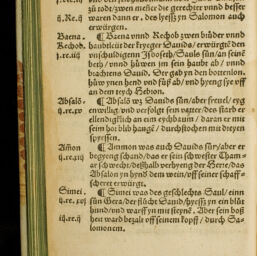 zů todt/zwen meñer die gerechter vnnd besser
ij.Re.ij waren dann er. des hyeß yn Salomon auch
erwürgen.
Baena ¶ Baena vnnd Rechob zwen brüder vnnd
Rechob. hauptleüt der kryeger Dauids/erwürgtẽ den
vnschuldigenn Isboseth/Sauls sün/an seinem
beth/vnnd hüwen jm sein haubt ab/vnnd
brachtens Dauid. Der gab yn den bottenlon.
hüw ynen hend vnd füß ab/vnd hyeng sye off
an dem tych Hebron.
Absalõ. ¶ Absalõ wz Dauids sün/aber freuel/eyg
ij.re.xv enwillig vnd verfolgt sein vatter/des starb er
ellendigklich an ein eychbaum/daran er mit
seim hor blib hangẽ/durchstochen mit dreyen
spyessen.
Amõn ¶ Ammon was auch Dauids sün/aber er
ij.re.xiij begyreng schand/das er sein schwester Tham-
ar schwecht/deßhalb verhyeng der Herr/das
Absalon yn hynd dem wein/off seiner schaff-
scheret erwürgt.
Simei. ¶ Simei was des geschlechts Saul/einn
ij.re.xvj sün Gera/der flücht Dauid/hyeß yn ein blůt
hund/vnd warff yn mit steynẽ. Aber sein boß
iij.re.ij heit ward bezalt off seinem kopff/durch Sa-
lomonem.